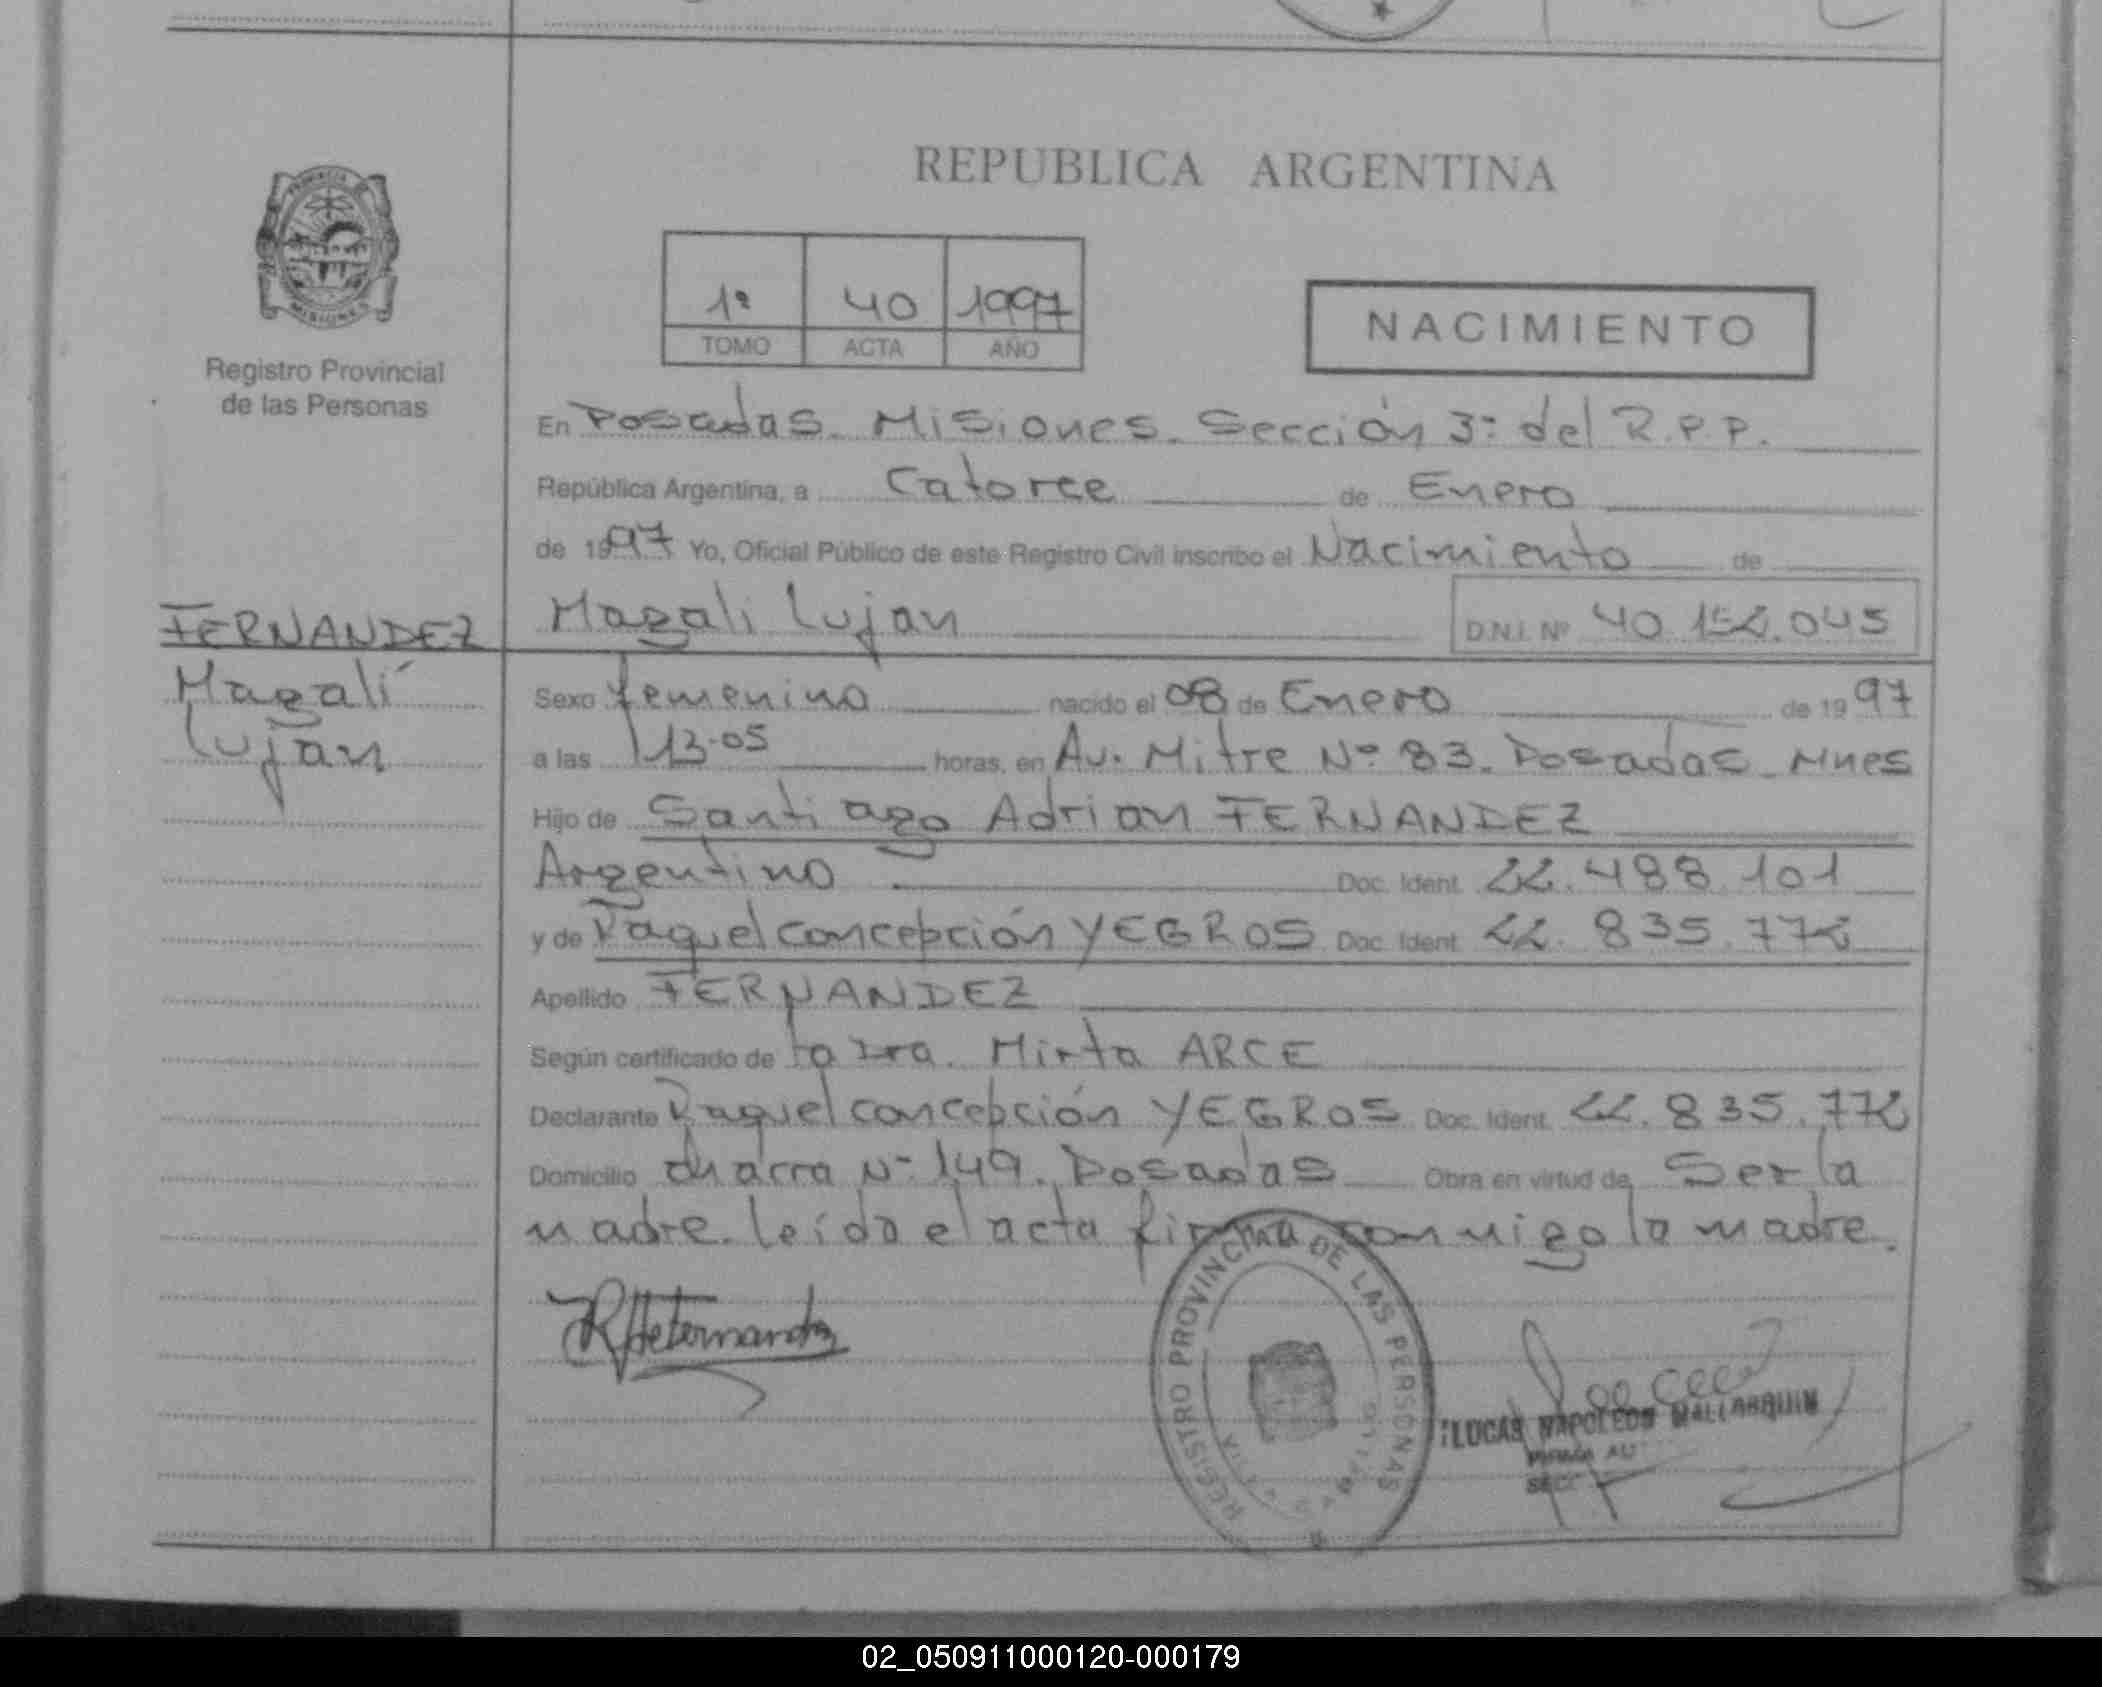 REPUBLICA ARGENTINA
PROVINCIA DE
MISIONES
Registro Provincial
de las Personas
1º 40 1997
TOMO ACTA AÑO
NACIMIENTO
En Posadas. Misiones. Sección 3ª del R.P.P.
República Argentina, a Catorce de Enero
de 1997 Yo, Oficial Público de este Registro Civil inscribo el Nacimiento de
Magali Lujan D.N.I. Nº 40.152.045
FERNANDEZ
Magalí
Lujan
Sexo femenino nacido el 08 de Enero de 1997
a las 13.05 horas, en Av. Mitre Nº 83. Posadas. Mnes
Hijo de Santiago Adrian FERNANDEZ
Argentino Doc. Ident. 22.488.101
y de Raquel Concepción YEGROS Doc. Ident. 22.835.772
Apellido FERNANDEZ
Según certificado de la Dra. Mirta ARCE
Declarante Raquel Concepción YEGROS Doc. Ident. 22.835.772
Domicilio Chacra Nº 149. Posadas Obra en virtud de Ser la
madre. leído el acta firma conmigo la madre.
REGISTRO PROVINCIAL DE LAS PERSONAS
LUCAS NAPOLEON MALLARQUIN
02_050911000120-000179